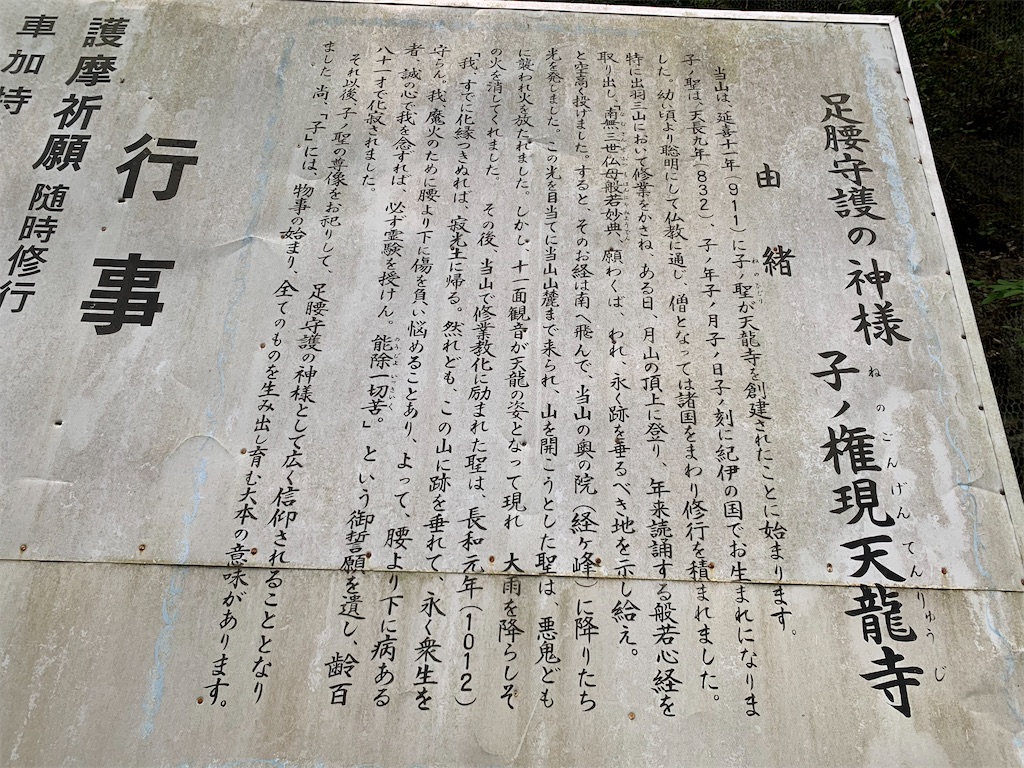 足腰守護の神様 子ノ権現天龍寺
ねのこんげんてんりゅうじ
由緒
当山は、延喜十一年(911)に子ノ聖が天龍寺を創建されたことに始まります。
ねのひじり
子ノ聖は、天長九年(832)、子ノ年子ノ月子ノ日子ノ刻に紀伊の国でお生まれになりま
した。幼い頃より聡明にして仏教に通じ、僧となっては諸国をまわり修行を積まれました。
特に出羽三山において修業をかさね、ある日、月山の頂上に登り、年来読誦する般若心経を
取り出し、「南無三世仏母般若妙典、願わくば、われ、永く跡を垂るべき地を示し給え。
と空高く投げました。すると、そのお経は南へ飛んで、当山の奥の院(経ヶ峰)に降りたち
光を発しました。この光を目当てに当山山麓まで来られ、山を開こうとした聖は、悪鬼ども
に襲われ火を放たれました。しかし、十一面観音が天龍の姿となって現れ 大雨を降らしそ
の火を消してくれました。 その後、当山で修業教化に励まれた聖は、長和元年(1012)
「我、すでに化縁つきぬれば、寂光土に帰る。然れども、この山に跡を垂れて、永く衆生を
守らん。我、魔火のために腰より下に傷を負い悩めることあり、よって、腰より下に病ある
者、誠の心で我を念ずれば、必ず霊験を授けん。能除一切苦。」という御誓願を遺し、齢百
のうじょいっさいく
八十一才で化寂されました。
それ以後、子ノ聖の尊像をお祀りして、足腰守護の神様として広く信仰されることとなり
ました 尚、「子」には、物事の始まり、全てのものを生み出し育む大本の意味があります。
行事
護摩祈願 随時修行
車加持 行